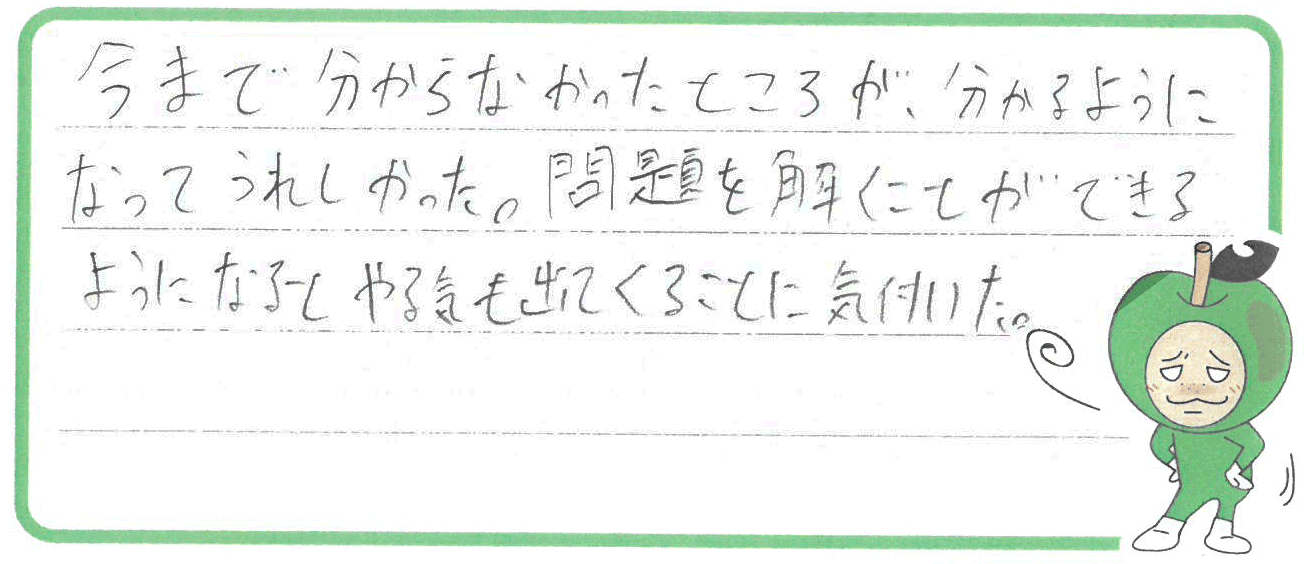 今まで分からなかったところが、分かるように
なってうれしかった。問題を解くことができる
ようになるとやる気も出てくることに気付いた。